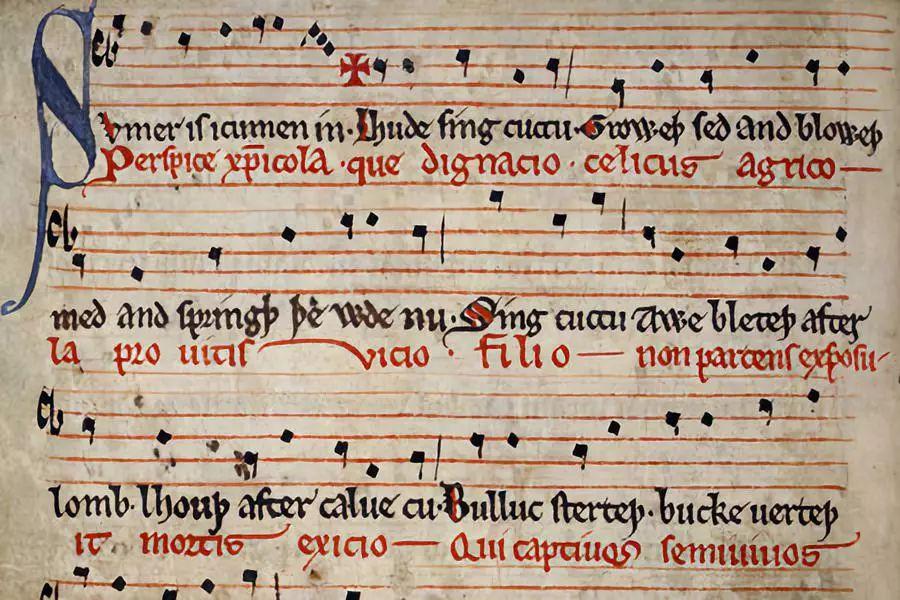 Svmer is icumen in· Lhude sing cuccu· Groweþ sed and bloweþ
Perspice xp̄icola · que dignacio · celicus agrico
med and springþ þe wde nu· Sing cuccu Awe bleteþ after
la pro uitis vicio · filio non parcens exposu
lomb· lhouþ after calue cu· Bulluc sterteþ· bucke uerteþ
it mortis exicio Qui captiuos semiuiuos